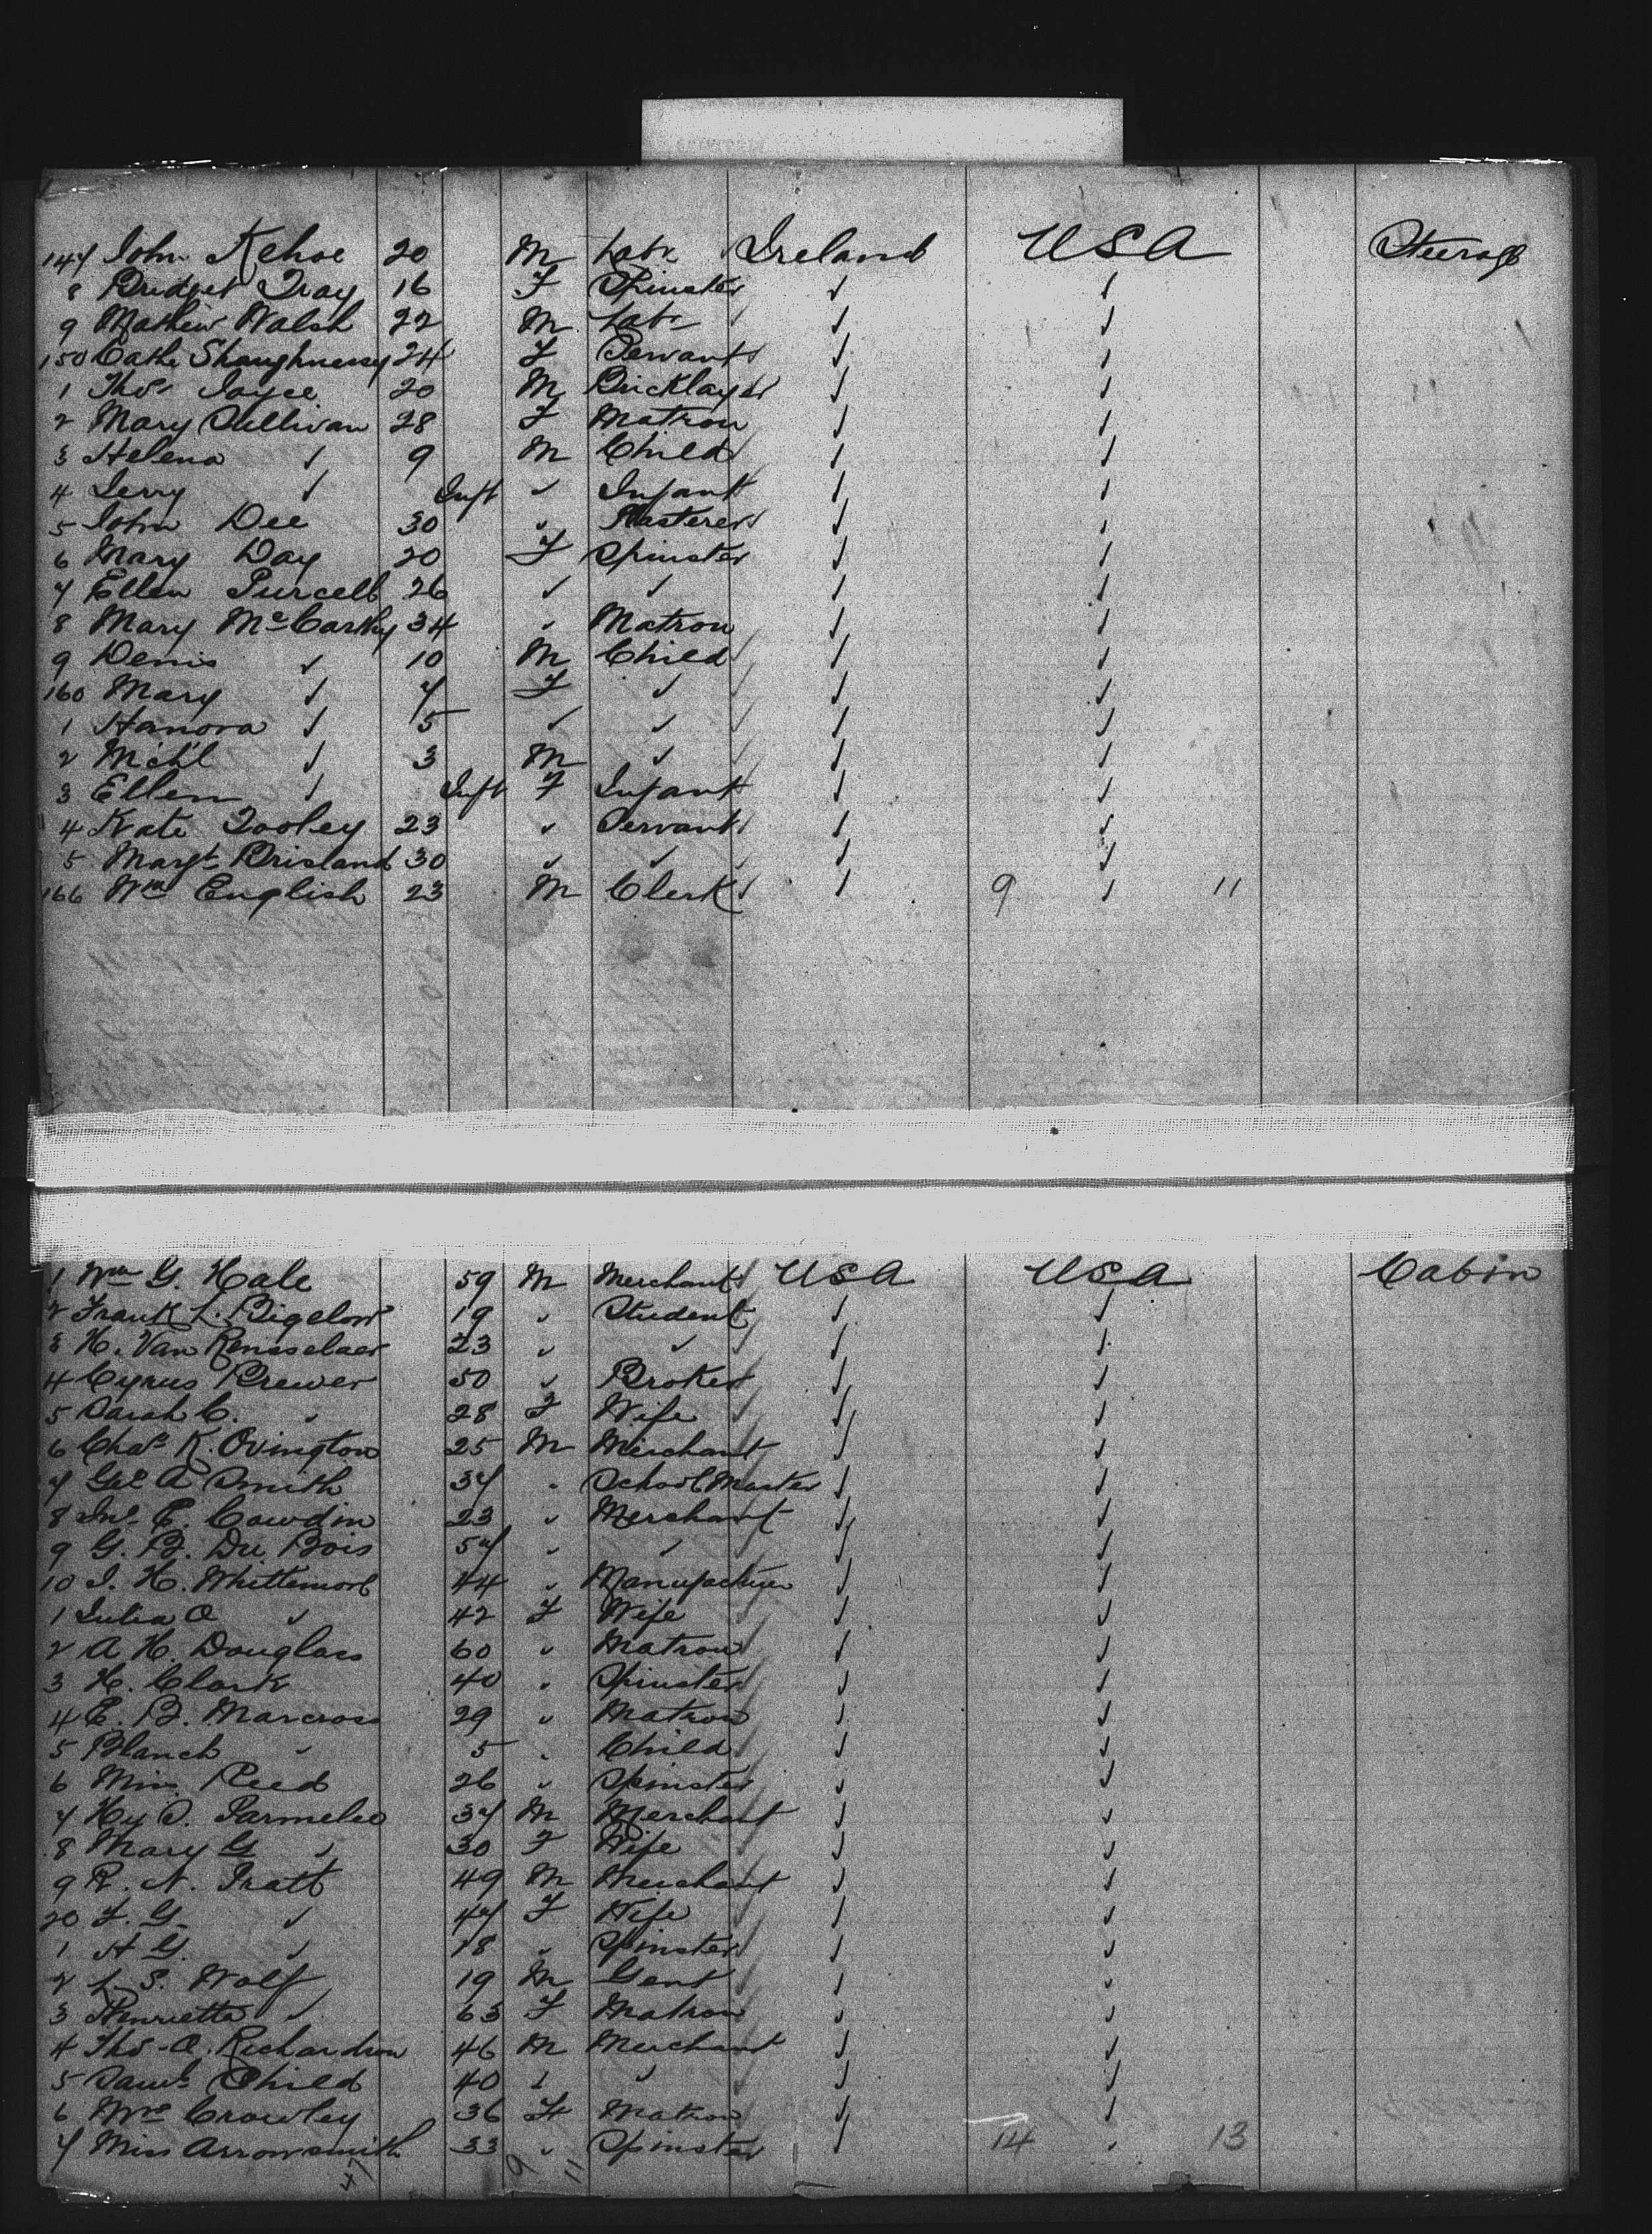 147 John Kehoe 20 M Labr Ireland USA Steerage
8 Bridget Gray 16 F Spinster ✓ ✓
9 Mathew Walsh 22 M Labr ✓ ✓
150 Cathe Shaughnessy 24 F Servant ✓ ✓
1 Thos Joyce 20 M Bricklayer ✓ ✓
2 Mary Sullivan 28 F Matron ✓ ✓
3 Helena ✓ 9 M Child ✓ ✓
4 Jerry ✓ Inft ✓ Infant ✓ ✓
5 John Dee 30 ✓ Plasterer ✓ ✓
6 Mary Day 20 F Spinster ✓ ✓
7 Ellen Purcell 26 ✓ ✓ ✓ ✓
8 Mary McCarthy 34 ✓ Matron ✓ ✓
9 Denis ✓ 10 M Child ✓ ✓
160 Mary ✓ 7 F ✓ ✓ ✓
1 Hanora ✓ 5 ✓ ✓ ✓ ✓
2 Michl ✓ 3 M ✓ ✓ ✓
3 Ellen ✓ Inft F Infant ✓ ✓
4 Kate Tooley 23 ✓ Servant ✓ ✓
5 Margt Brisland 30 ✓ ✓ ✓ ✓
166 Wm English 23 M Clerk ✓ 9 ✓ 11
1 Wm G. Hale 59 M Merchant USA USA Cabin
2 Frank L. Bigelow 19 ✓ Student ✓ ✓
3 H. Van Rensselaer 23 ✓ ✓ ✓ ✓
4 Cyrus Brewer 50 ✓ Broker ✓ ✓
5 Sarah C. ✓ 28 F Wife ✓ ✓
6 Chas K. Ovington 25 M Merchant ✓ ✓
7 Geo A Smith 37 ✓ School Master ✓ ✓
8 Jno E. Cowdin 23 ✓ Merchant ✓ ✓
9 G. B. Du Bois 57 ✓ ✓ ✓ ✓
10 J. H. Whittemore 44 ✓ Manufacturer ✓ ✓
1 Julia A ✓ 42 F Wife ✓ ✓
2 A H. Douglass 60 ✓ Matron ✓ ✓
3 H. Clark 40 ✓ Spinster ✓ ✓
4 E. B. Marcross 29 ✓ Matron ✓ ✓
5 Blanch ✓ 5 ✓ Child ✓ ✓
6 Miss Reed 26 ✓ Spinster ✓ ✓
7 Hy S. Parmelee 37 M Merchant ✓ ✓
8 Mary G ✓ 30 F Wife ✓ ✓
9 R. N. Pratt 49 M Merchant ✓ ✓
20 F. G. ✓ 47 F Wife ✓ ✓
1 H G. ✓ 18 ✓ Spinster ✓ ✓
2 L. S. Wolf 19 M Gent ✓ ✓
3 Henrietta ✓ 63 F Matron ✓ ✓
4 Thos. A. Richardson 46 M Merchant ✓ ✓
5 Saml Child 40 ✓ ✓ ✓ ✓
6 Mrs Crowley 36 F Matron ✓ ✓
7 Miss Arrowsmith 33 ✓ Spinster ✓ 14 ✓ 13
9 11